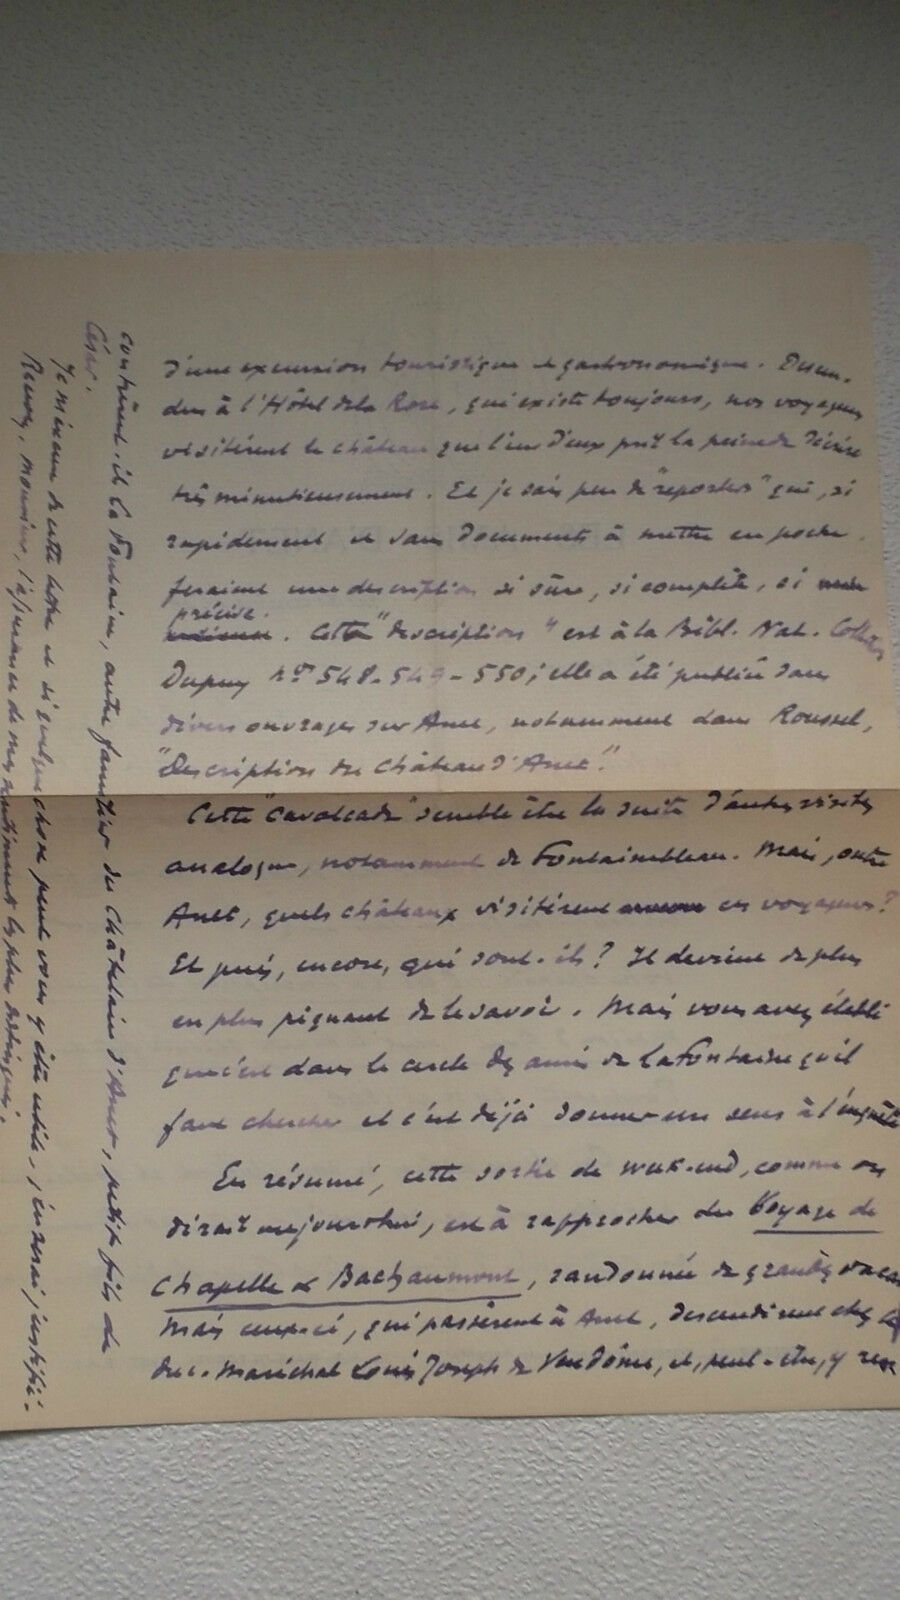 d'une excursion touristique et gastronomique. Descen-
dus à l'Hôtel de la Rose, qui existe toujours, nos voyageurs
visitèrent le château que l'un d'eux prit la peine de décrire
très minutieusement. Et je sais peu de "reporters" qui, si
rapidement et sans documents à mettre en poche,
feraient une description si sûre, si complète, si
précise. Cette "description" est à la Bibl. Nat. Collon
Dupuy nos 548-549-550; elle a été publiée dans
divers ouvrages sur Anet, notamment dans Roussel,
"Description du Château d'Anet".
Cette "Cavalcade" semble être la suite d'autres visites
analogues, notamment de Fontainebleau. Mais, outre
Anet, quels châteaux visitèrent ces voyageurs?
Et puis, encore, qui sont-ils? Il devient de plus
en plus piquant de le savoir. Mais vous avez établi
que c'est dans le cercle des amis de La Fontaine qu'il
faut chercher et c'est déjà donner un sens à l'enquête
En résumé, cette sortie de week-end, comme on
dirait aujourd'hui, est à rapprocher du Voyage de
Chapelle & Bachaumont, randonnée de grandes vacan
Mais ceux-ci, qui passèrent à Anet, descendirent chez le
duc-Maréchal Louis Joseph de Vendôme, et, peut-être, y ren
contrèrent-ils La Fontaine, autre familier du Châtelain d'Anet, petit fils de
César.
Je m'excuse de cette lettre et si quelque chose peut vous y être utile, j'en serai justifié.
Recevez, monsieur, l'assurance de mes sentiments les plus distingués.